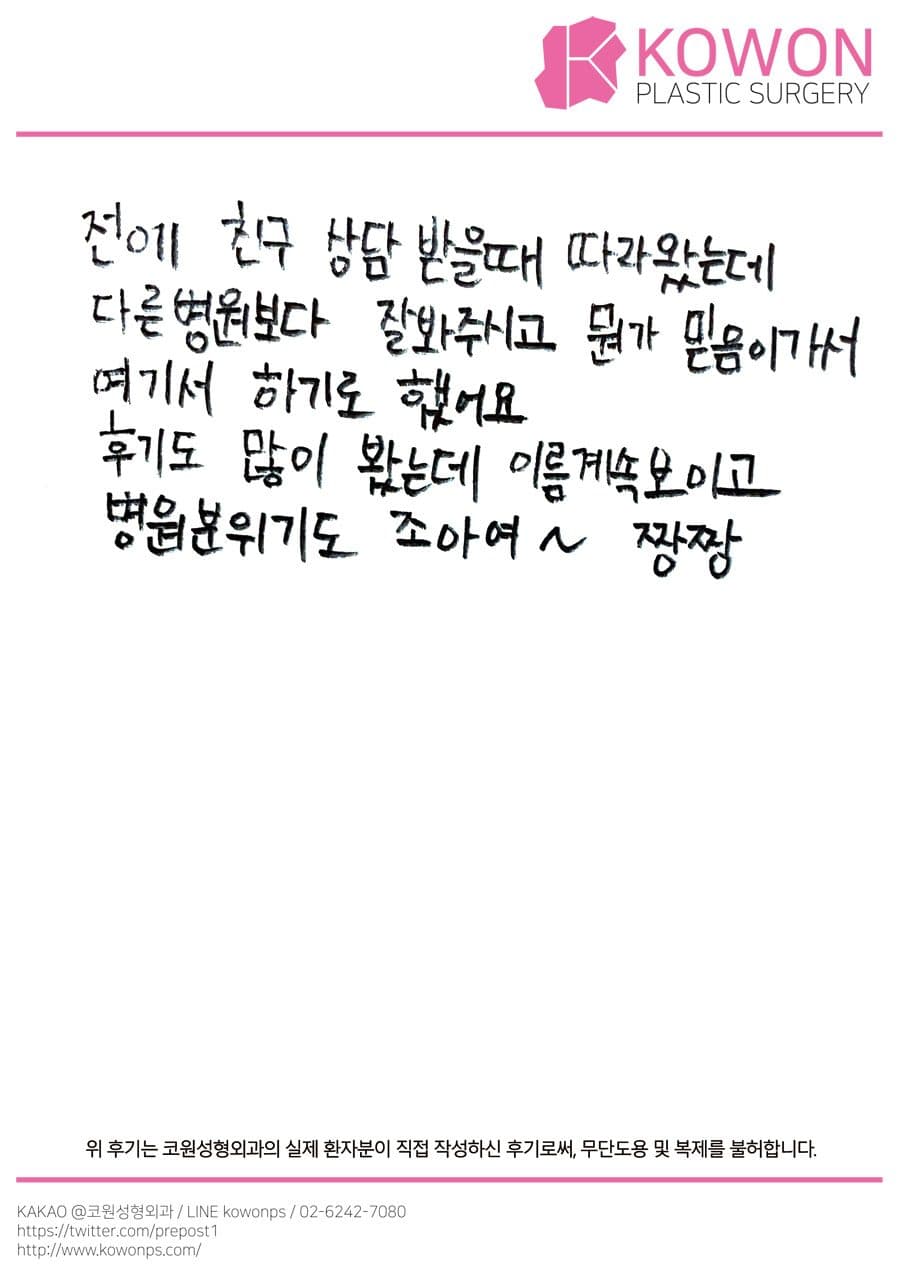 KOWON
PLASTIC SURGERY
전에 친구 상담 받을때 따라왔는데
다른병원보다 잘봐주시고 뭔가 믿음이가서
여기서 하기로 했어요
후기도 많이 봤는데 이름계속보이고
병원분위기도 조아여~ 짱짱
위 후기는 코원성형외과의 실제 환자분이 직접 작성하신 후기로써, 무단도용 및 복제를 불허합니다.
KAKAO @코원성형외과 / LINE kowonps / 02-6242-7080
https://twitter.com/prepost1
http://www.kowonps.com/